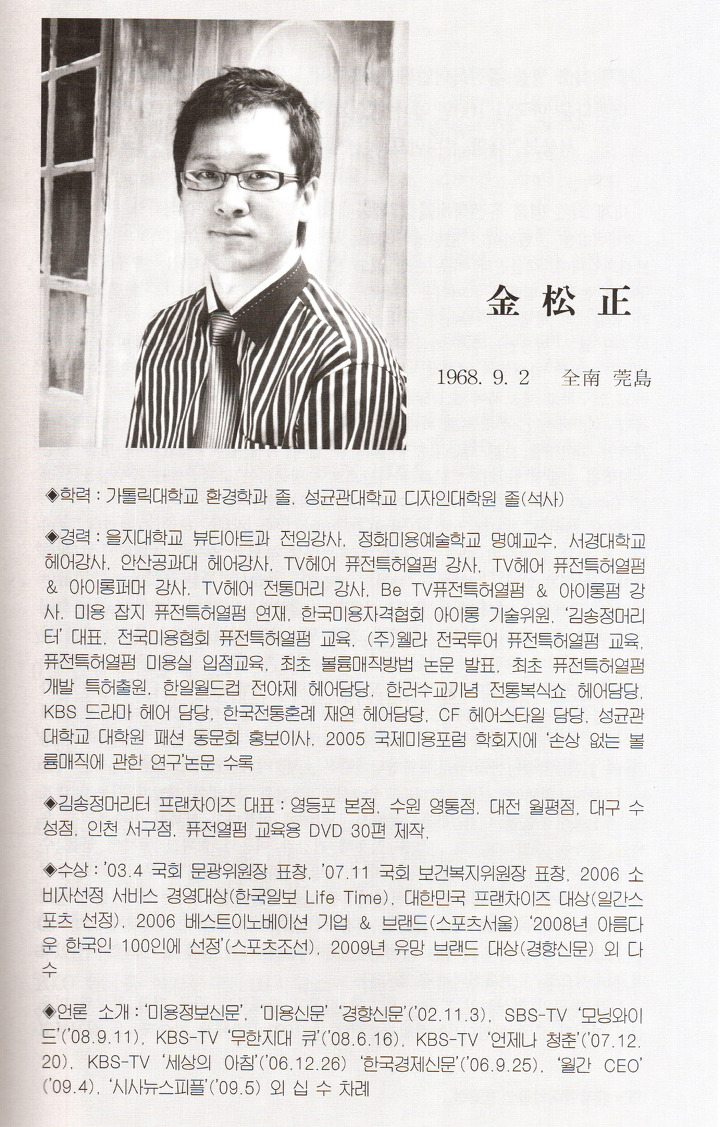 金 松 正
1968. 9. 2 全南 莞島
◈학력 : 가톨릭대학교 환경학과 졸, 성균관대학교 디자인대학원 졸(석사)
◈경력 : 을지대학교 뷰티아트과 전임강사, 정화미용예술학교 명예교수, 서경대학교
헤어강사, 안산공과대 헤어강사, TV헤어 퓨전특허열펌 강사, TV헤어 퓨전특허열펌
& 아이롱퍼머 강사, TV헤어 전통머리 강사, Be TV퓨전특허열펌 & 아이롱펌 강
사, 미용 잡지 퓨전특허열펌 연재, 한국미용자격협회 아이롱 기술위원, ‘김송정머리
터’ 대표, 전국미용협회 퓨전특허열펌 교육, (주)웰라 전국투어 퓨전특허열펌 교육,
퓨전특허열펌 미용실 입점교육, 최초 볼륨매직방법 논문 발표, 최초 퓨전특허열펌
개발 특허출원, 한일월드컵 전야제 헤어담당, 한러수교기념 전통복식쇼 헤어담당,
KBS 드라마 헤어 담당, 한국전통혼례 재연 헤어담당, CF 헤어스타일 담당, 성균관
대학교 대학원 패션 동문회 홍보이사, 2005 국제미용포럼 학회지에 ‘손상 없는 볼
륨매직에 관한 연구’논문 수록
◈김송정머리터 프랜차이즈 대표 : 영등포 본점, 수원 영통점, 대전 월평점, 대구 수
성점, 인천 서구점, 퓨전열펌 교육용 DVD 30편 제작,
◈수상 : ’03.4 국회 문광위원장 표창, ’07.11 국회 보건복지위원장 표창, 2006 소
비자선정 서비스 경영대상(한국일보 Life Time), 대한민국 프랜차이즈 대상(일간스
포츠 선정), 2006 베스트이노베이션 기업 & 브랜드(스포츠서울) ‘2008년 아름다
운 한국인 100인에 선정’(스포츠조선), 2009년 유망 브랜드 대상(경향신문) 외 다
수
◈언론 소개 : ‘미용정보신문’, ‘미용신문’ ‘경향신문’(’02.11.3), SBS-TV ‘모닝와이
드’(’08.9.11), KBS-TV ‘무한지대 큐’(’08.6.16), KBS-TV ‘언제나 청춘’(’07.12.
20), KBS-TV ‘세상의 아침’(’06.12.26) ‘한국경제신문’(’06.9.25), ‘월간 CEO’
(’09.4), ‘시사뉴스피플’(’09.5) 외 십 수 차례